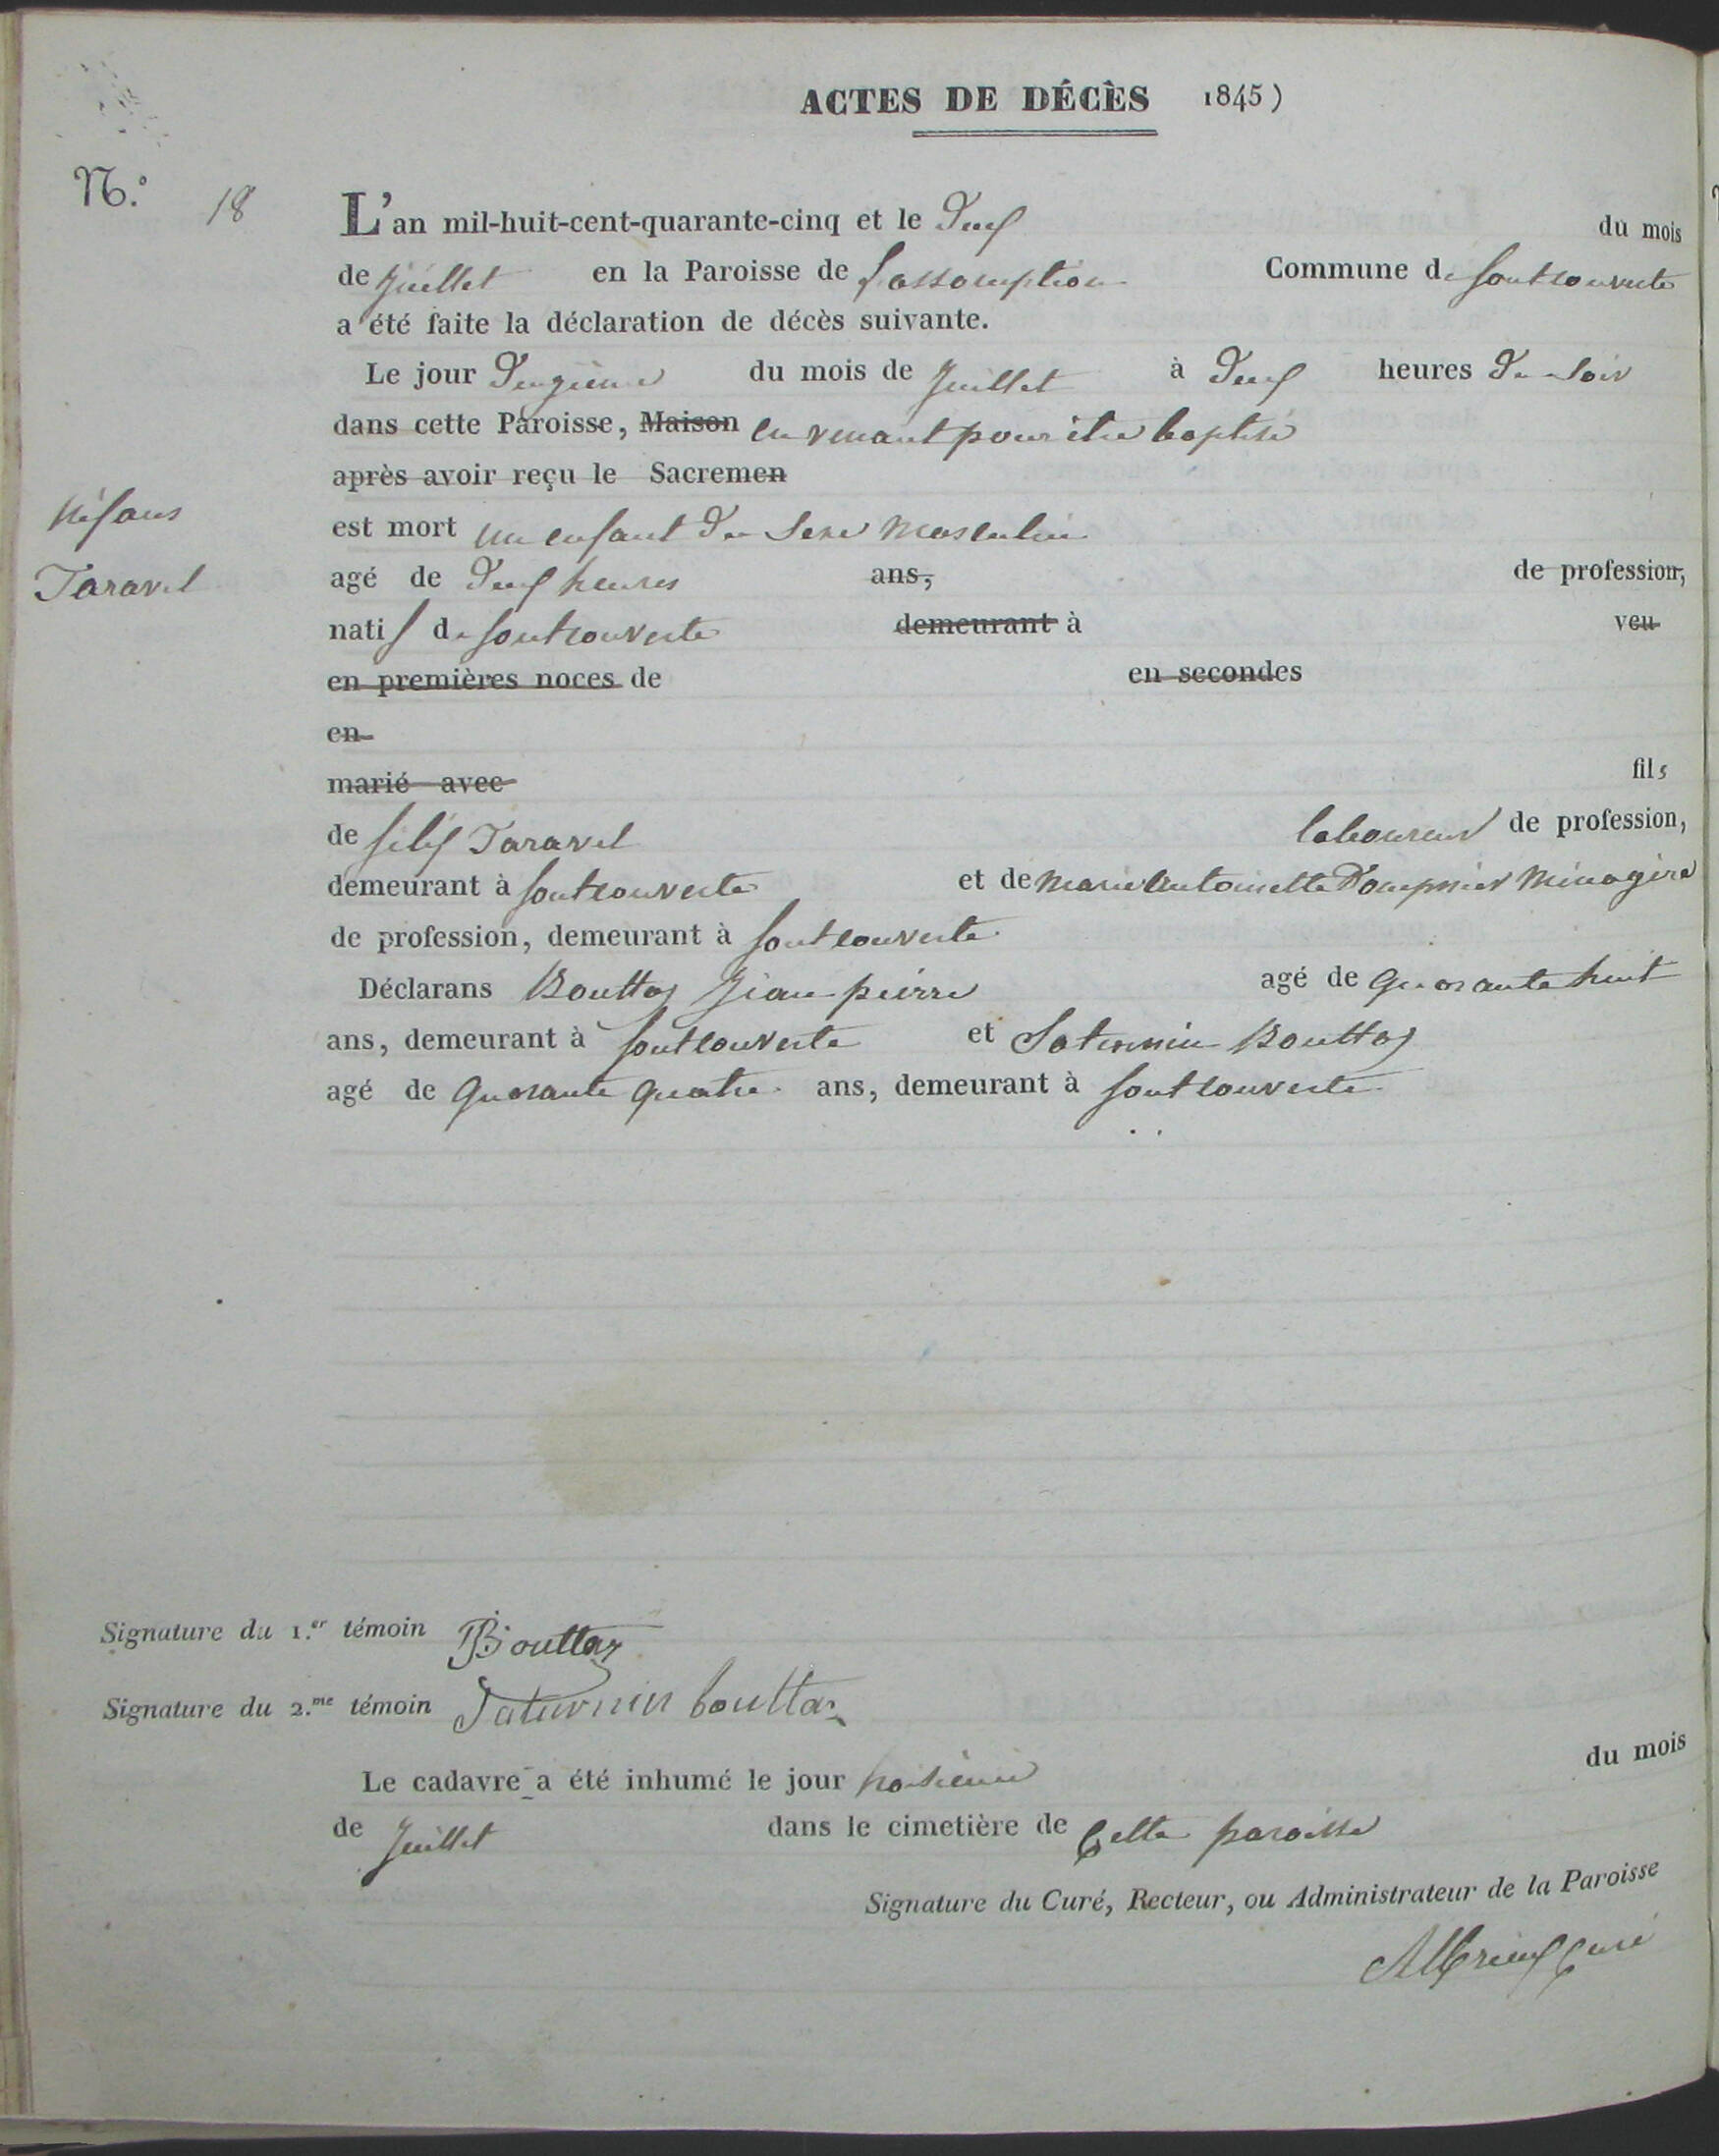 ACTES DE DÉCÈS 1845)
N.º 18
L'an mil-huit-cent-quarante-cinq et le Deux du mois
de Juillet en la Paroisse de l'assomption Commune de fontcouverte
a été faite la déclaration de décès suivante.
Le jour Deuxieme du mois de Juillet à Deux heures Du soir
dans cette Paroisse, Maison en venant pour être baptisé
après avoir reçu le Sacremen
est mort un enfant Du Sexe Masculin
Taravel
agé de Deux heures ans, de profession,
natif de fontcouverte demeurant à veu
en premières noces de en secondes
en
marié avec fils
de félix Taravel laboureur de profession,
demeurant à fontcouverte et de Marie Antoinette Dompnier Ménagère
de profession, demeurant à fontcouverte
Déclarans Bouttaz Jean pierre agé de quarante huit
ans, demeurant à fontcouverte et Saturnin Bouttaz
agé de quarante quatre ans, demeurant à fontcouverte
Signature du 1.er témoin Bouttaz
Signature du 2.me témoin Saturnin bouttaz
Le cadavre a été inhumé le jour troisieme du mois
de Juillet dans le cimetière de Cette paroisse
Signature du Curé, Recteur, ou Administrateur de la Paroisse
Curé